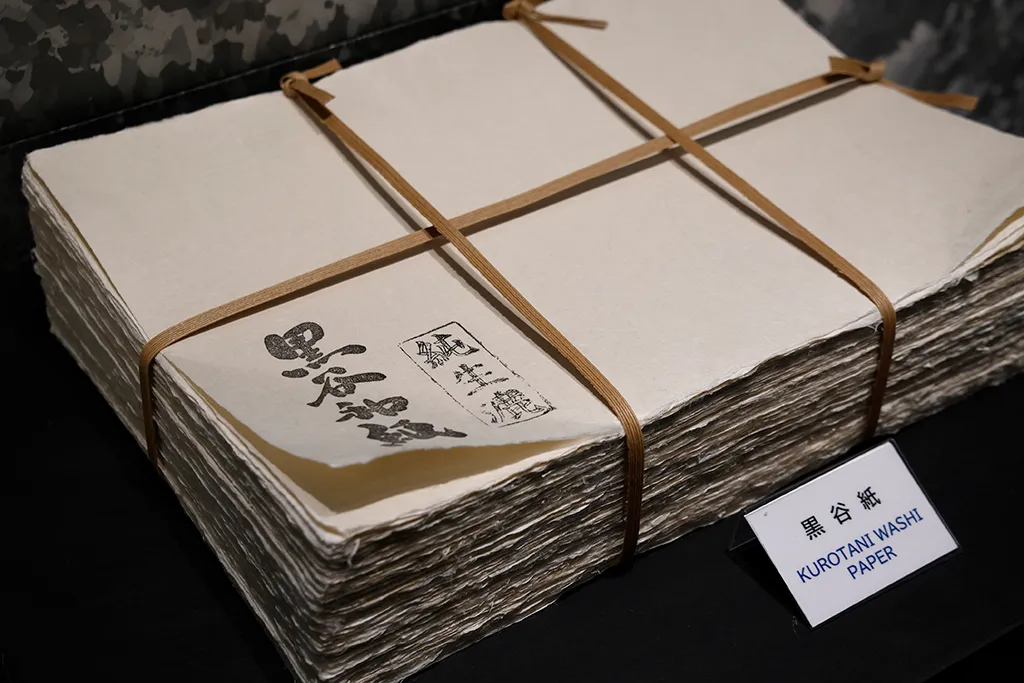 純生漉
黒谷和紙
黒谷紙
KUROTANI WASHI
PAPER